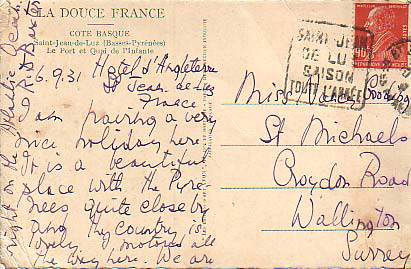 LA DOUCE FRANCE
COTE BASQUE
Saint-Jean-de-Luz (Basses-Pyrénées)
Le Port et Quai de l'Infante
6.9.31 Hotel d'Angleterre
St Jean de Luz
France
I am having a very
nice holiday here
It is a beautiful
place with the Pyre
nees quite close by
and the country is
lovely. I motored all
the way here. We are
right on the
SAINT-JEAN
DE LUZ
SAISON
TOUT L'ANNÉE
90c
Miss Nancy
St Michaels
Croydon Road
Wallington
Surrey